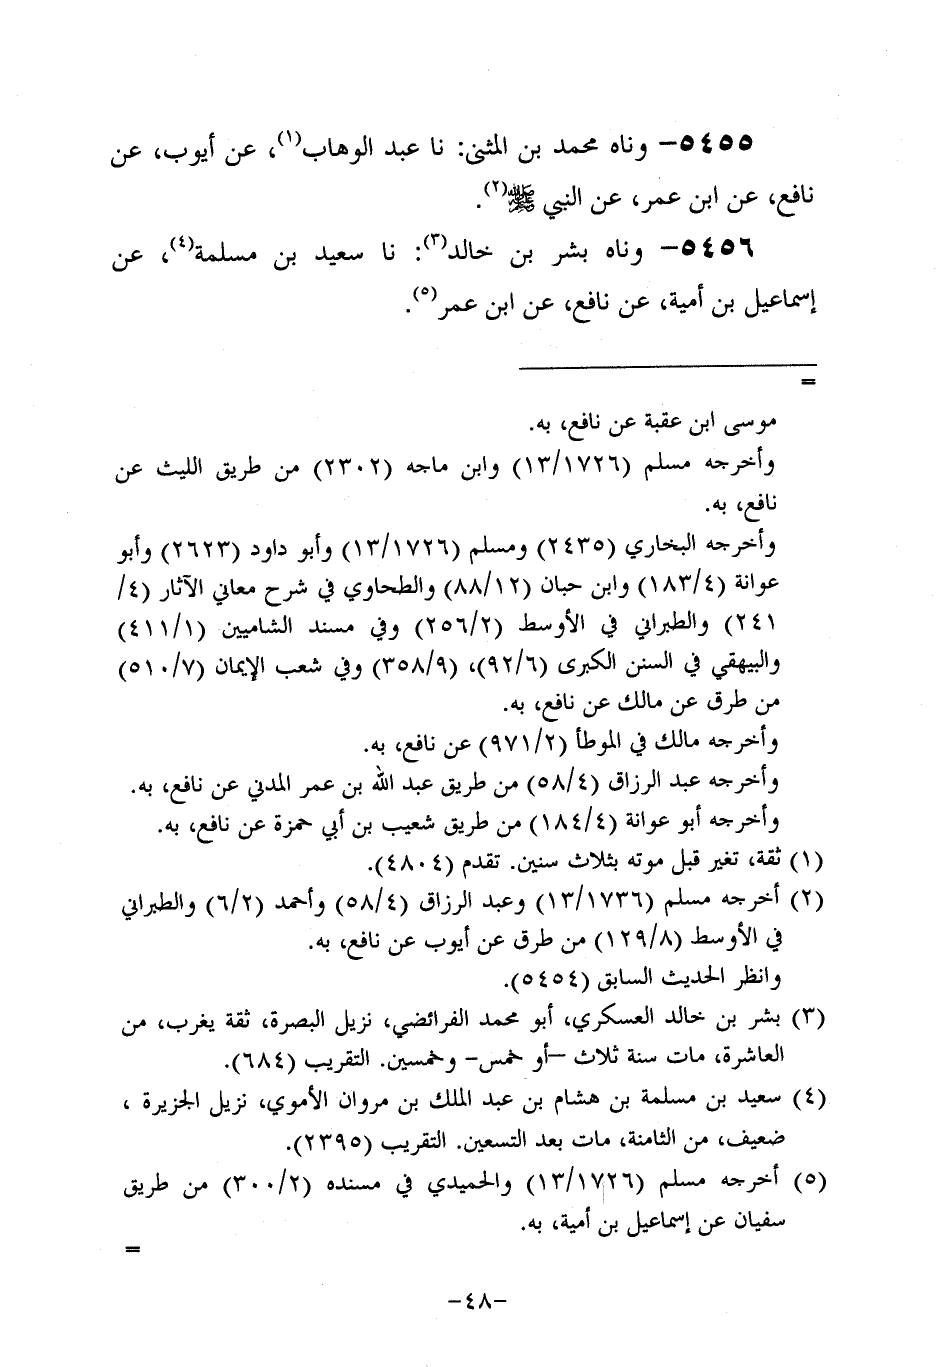 ٥٤٥٥– وناه محمد بن المثنى: نا عبد الوهاب(١)، عن أيوب، عن
نافع، عن ابن عمر، عن النبي ﷺ(٢).
٥٤٥٦– وناه بشر بن خالد(٣): نا سعيد بن مسلمة(٤)، عن
إسماعيل بن أمية، عن نافع، عن ابن عمر(٥).
=
موسى ابن عقبة عن نافع، به.
وأخرجه مسلم (١٣/١٧٢٦) وابن ماجه (٢٣٠٢) من طريق الليث عن
نافع، به.
وأخرجه البخاري (٢٤٣٥) ومسلم (١٣/١٧٢٦) وأبو داود (٢٦٢٣) وأبو
عوانة (١٨٣/٤) وابن حبان (٨٨/١٢) والطحاوي في شرح معاني الآثار (٤/
٢٤١) والطبراني في الأوسط (٢٥٦/٢) وفي مسند الشاميين (٤١١/١)
والبيهقي في السنن الكبرى (٩٢/٦)، (٣٥٨/٩) وفي شعب الإيمان (٥١٠/٧)
من طرق عن مالك عن نافع، به.
وأخرجه مالك في الموطأ (٩٧١/٢) عن نافع، به.
وأخرجه عبد الرزاق (٥٨/٤) من طريق عبد الله بن عمر المدني عن نافع، به.
وأخرجه أبو عوانة (١٨٤/٤) من طريق شعيب بن أبي حمزة عن نافع، به.
(١) ثقة، تغير قبل موته بثلاث سنين. تقدم (٤٨٠٤).
(٢) أخرجه مسلم (١٣/١٧٣٦) وعبد الرزاق (٥٨/٤) وأحمد (٦/٢) والطبراني
في الأوسط (١٢٩/٨) من طرق عن أيوب عن نافع، به.
وانظر الحديث السابق (٥٤٥٤).
(٣) بشر بن خالد العسكري، أبو محمد الفرائضي، نزيل البصرة، ثقة يغرب، من
العاشرة، مات سنة ثلاث –أو خمس– وخمسين. التقريب (٦٨٤).
(٤) سعيد بن مسلمة بن هشام بن عبد الملك بن مروان الأموي، نزيل الجزيرة ،
ضعيف، من الثامنة، مات بعد التسعين. التقريب (٢٣٩٥).
(٥) أخرجه مسلم (١٣/١٧٢٦) والحميدي في مسنده (٣٠٠/٢) من طريق
سفيان عن إسماعيل بن أمية، به.
=
–٤٨–